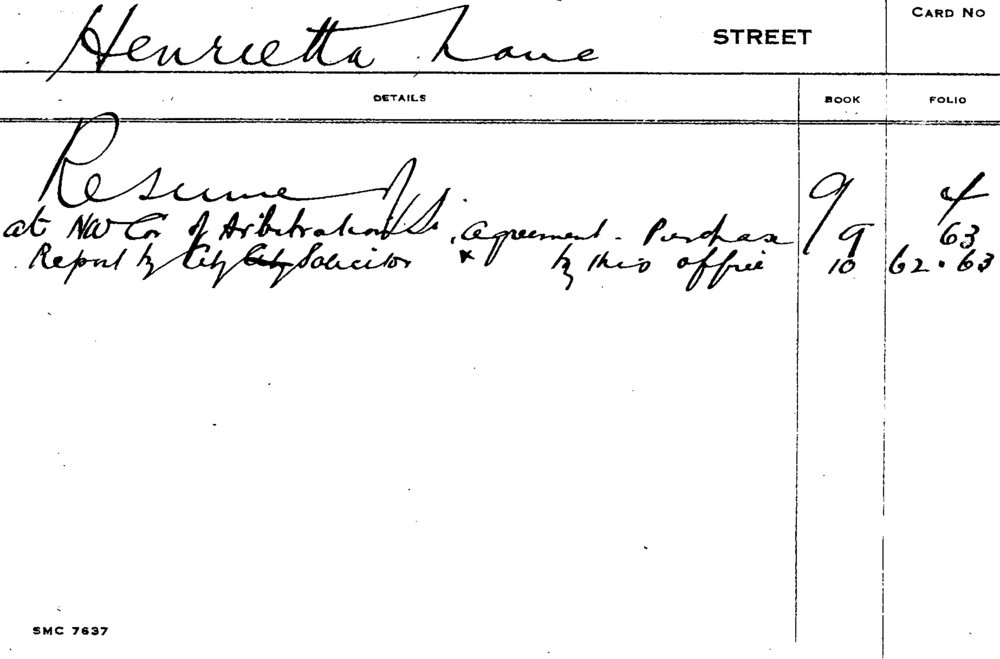 Henrietta Lane STREET CARD NO
DETAILS BOOK FOLIO
Resume 9 4
at NW Cor of Arbitration St. Agreement - Purchase 9 63
Report by City City Solicitor & by this office 10 62.63
SMC 7637